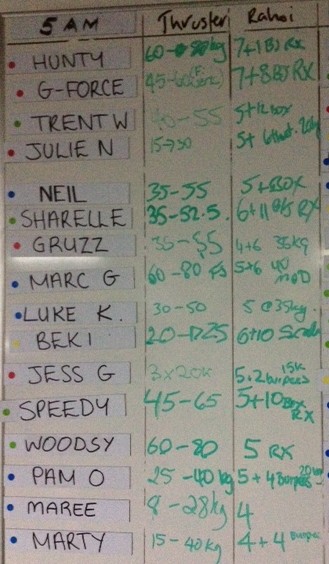 5 AM Thruster Rahoi
HUNTY 60- kg 7+1 BJ RX
G-FORCE 45-60 7+8BJ RX
TRENT W 40-55 5+12BOX
JULIE N 15-30 5+ 6
NEIL 35-55 5+8BOX
SHARELLE 35-52.5. 6+11 RX
GRUZZ 35-55 4+6 35KG
MARC G 60-80 5+6
LUKE K. 30-50 5 @35kg
BEKI 20- 6+10
JESS G 3x20k 5.2 burpees 15K
SPEEDY 45-65 5+10 Box RX
WOODSY 60-80 5 RX
PAM O 25-40kg 5+4Burpees
MAREE 8-28kg 4
MARTY 15-40kg 4+4 Burpee